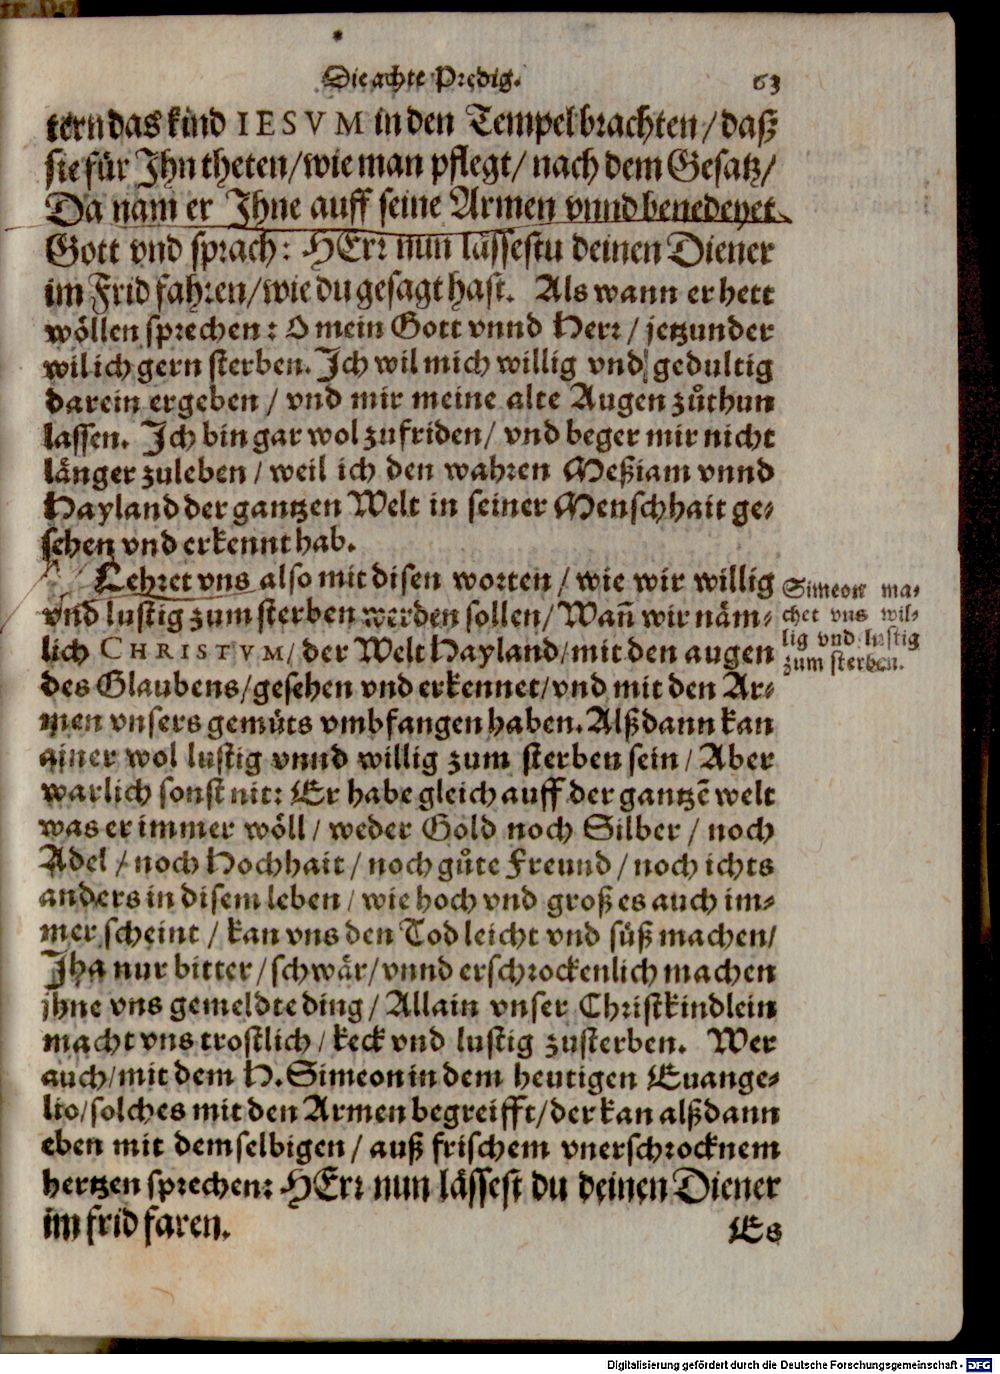 Die achte Predig. 63
tern das kind IESVM in den Tempel brachten/ daß
sie für Jhn theten/ wie man pflegt/ nach dem Gesatz/
Da nam er Jhne auff seine Armen vnnd benedeyet
Gott vnd sprach: HErr nun lässestu deinen Diener
im Frid fahren/ wie du gesagt hast. Als wann er hett
wöllen sprechen: O mein Gott vnnd Herr/ jetzunder
wil ich gern sterben. Jch wil mich willig vnd gedultig
darein ergeben/ vnd mir meine alte Augen zůthun
lassen. Jch bin gar wol zufriden/ vnd beger mir nicht
länger zuleben/ weil ich den wahren Meßiam vnnd
Hayland der gantzen Welt in seiner Menschhait ge-
sehen vnd erkennt hab.
Lehret vns also mit disen worten/ wie wir willig
vnd lustig zum sterben werden sollen/ Wañ wir näm-
lich CHRISTVM/ der Welt Hayland/ mit den augen
des Glaubens/ gesehen vnd erkennet/ vnd mit den Ar-
men vnsers gemüts vmbfangen haben. Alßdann kan
ainer wol lustig vnnd willig zum sterben sein/ Aber
warlich sonst nit: Er habe gleich auff der gantzē welt
was er immer wöll/ weder Gold noch Silber/ noch
Adel/ noch Hochhait/ noch gůte Freund/ noch ichts
anders in disem leben/ wie hoch vnd groß es auch im-
mer scheint/ kan vns den Tod leicht vnd süß machen/
Jha nur bitter/ schwär/ vnnd erschrockenlich machen
jhne vns gemeldte ding/ Allain vnser Christkindlein
macht vns trostlich/ keck vnd lustig zusterben. Wer
auch/ mit dem H. Simeon in dem heutigen Euange-
lio/ solches mit den Armen begreifft/ der kan alßdann
eben mit demselbigen/ auß frischem vnerschrocknem
hertzen sprechen: HErr nun lässest du deinen Diener
im frid faren.
Es
Simeon ma-
chet vns wil-
lig vnd lustig
zum sterben.
Digitalisierung gefördert durch die Deutsche Forschungsgemeinschaft - DFG